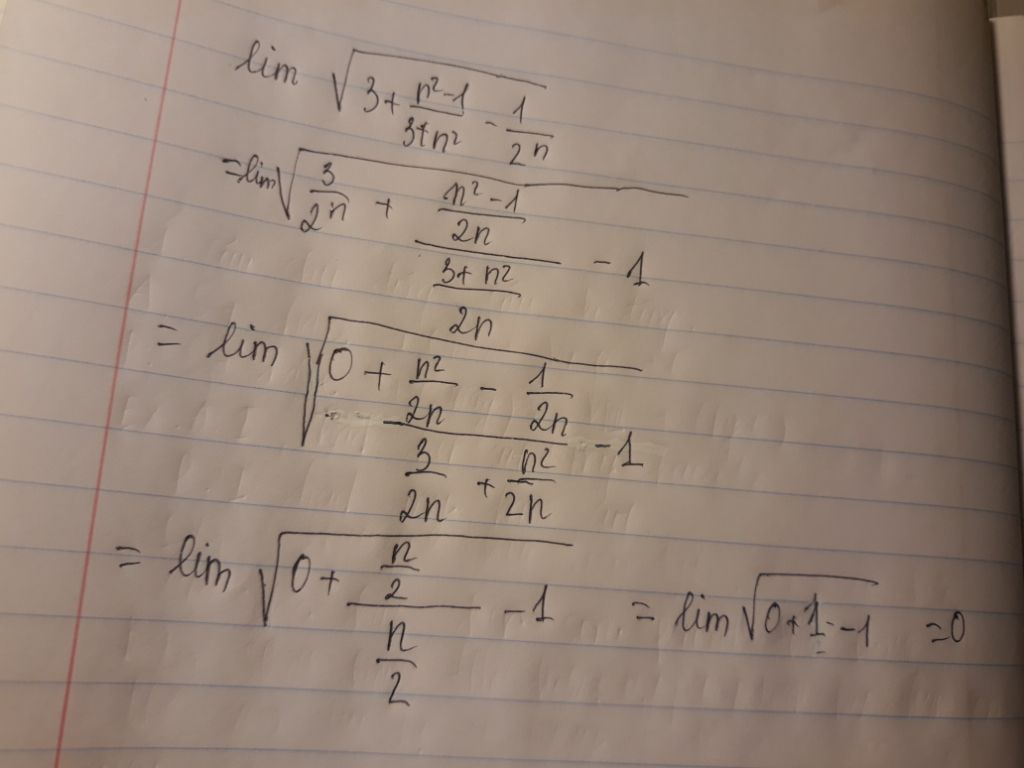 lim √(3 + (n²-1)/(3+n²) - 1/(2n))
= lim √(3/(2n) + ((n²-1)/(2n))/((3+n²)/(2n)) - 1)
= lim √(0 + (n²/(2n) - 1/(2n))/(3/(2n) + n²/(2n)) - 1)
= lim √(0 + (n/2)/(n/2) - 1) = lim √(0+1-1) = 0